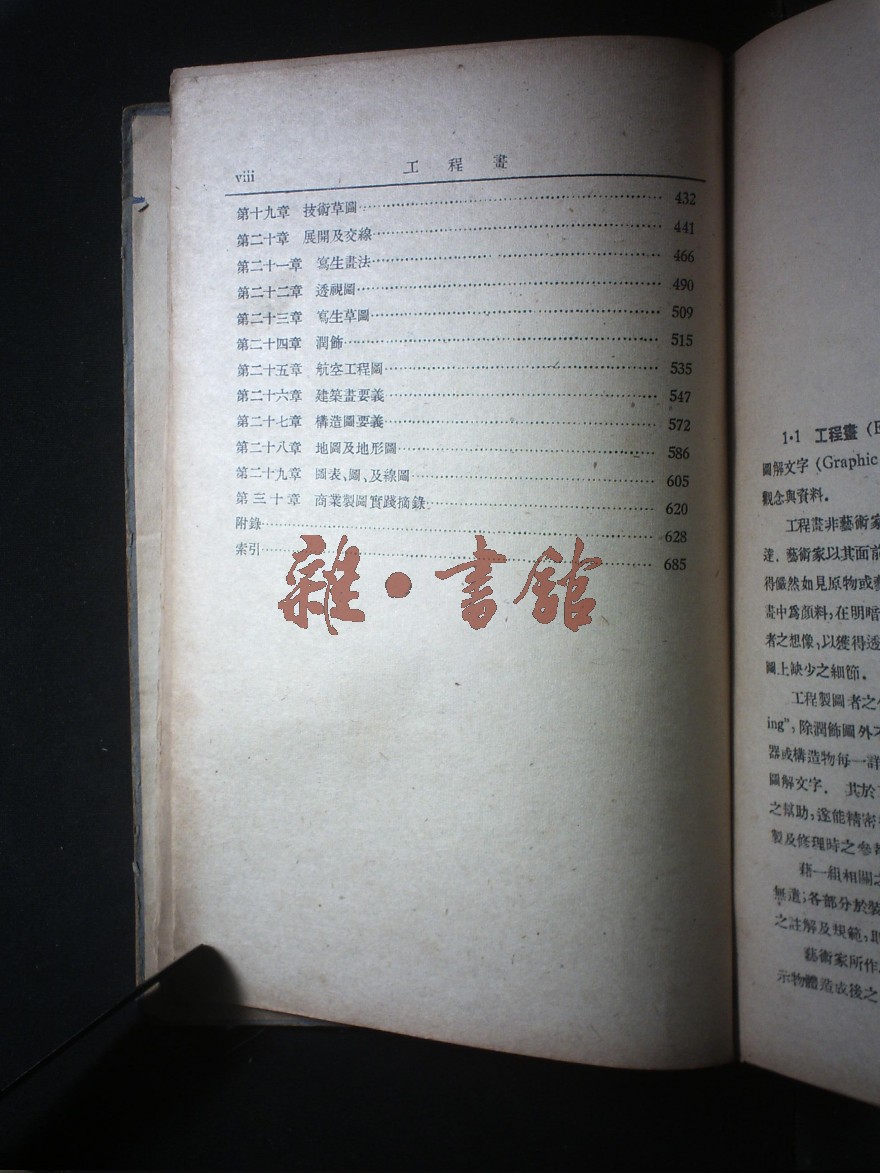 viii 工程畫
第十九章 技術草圖 432
第二十章 展開及交線 441
第二十一章 寫生畫法 466
第二十二章 透視圖 490
第二十三章 寫生草圖 509
第二十四章 潤飾 515
第二十五章 航空工程圖 535
第二十六章 建築畫要義 547
第二十七章 構造圖要義 572
第二十八章 地圖及地形圖 586
第二十九章 圖表、圖、及線圖 605
第三十章 商業製圖實踐摘錄 620
附錄 628
索引 685
雜·書館
1·1 工程畫 (E
圖解文字 (Graphic
觀念與資料.
工程畫非藝術家
達. 藝術家以其面前
得儼然如見原物或
畫中爲顏料,在明暗
者之想像,以獲得透
圖上缺少之細節.
工程製圖者之
ing", 除潤飾圖外不
器或構造物每一詳
圖解文字. 其於
之幫助,遂能精密
製及修理時之參
藉一組相關之
無遺;各部分於裝
之註解及規範,
藝術家所作
示物體造成後之